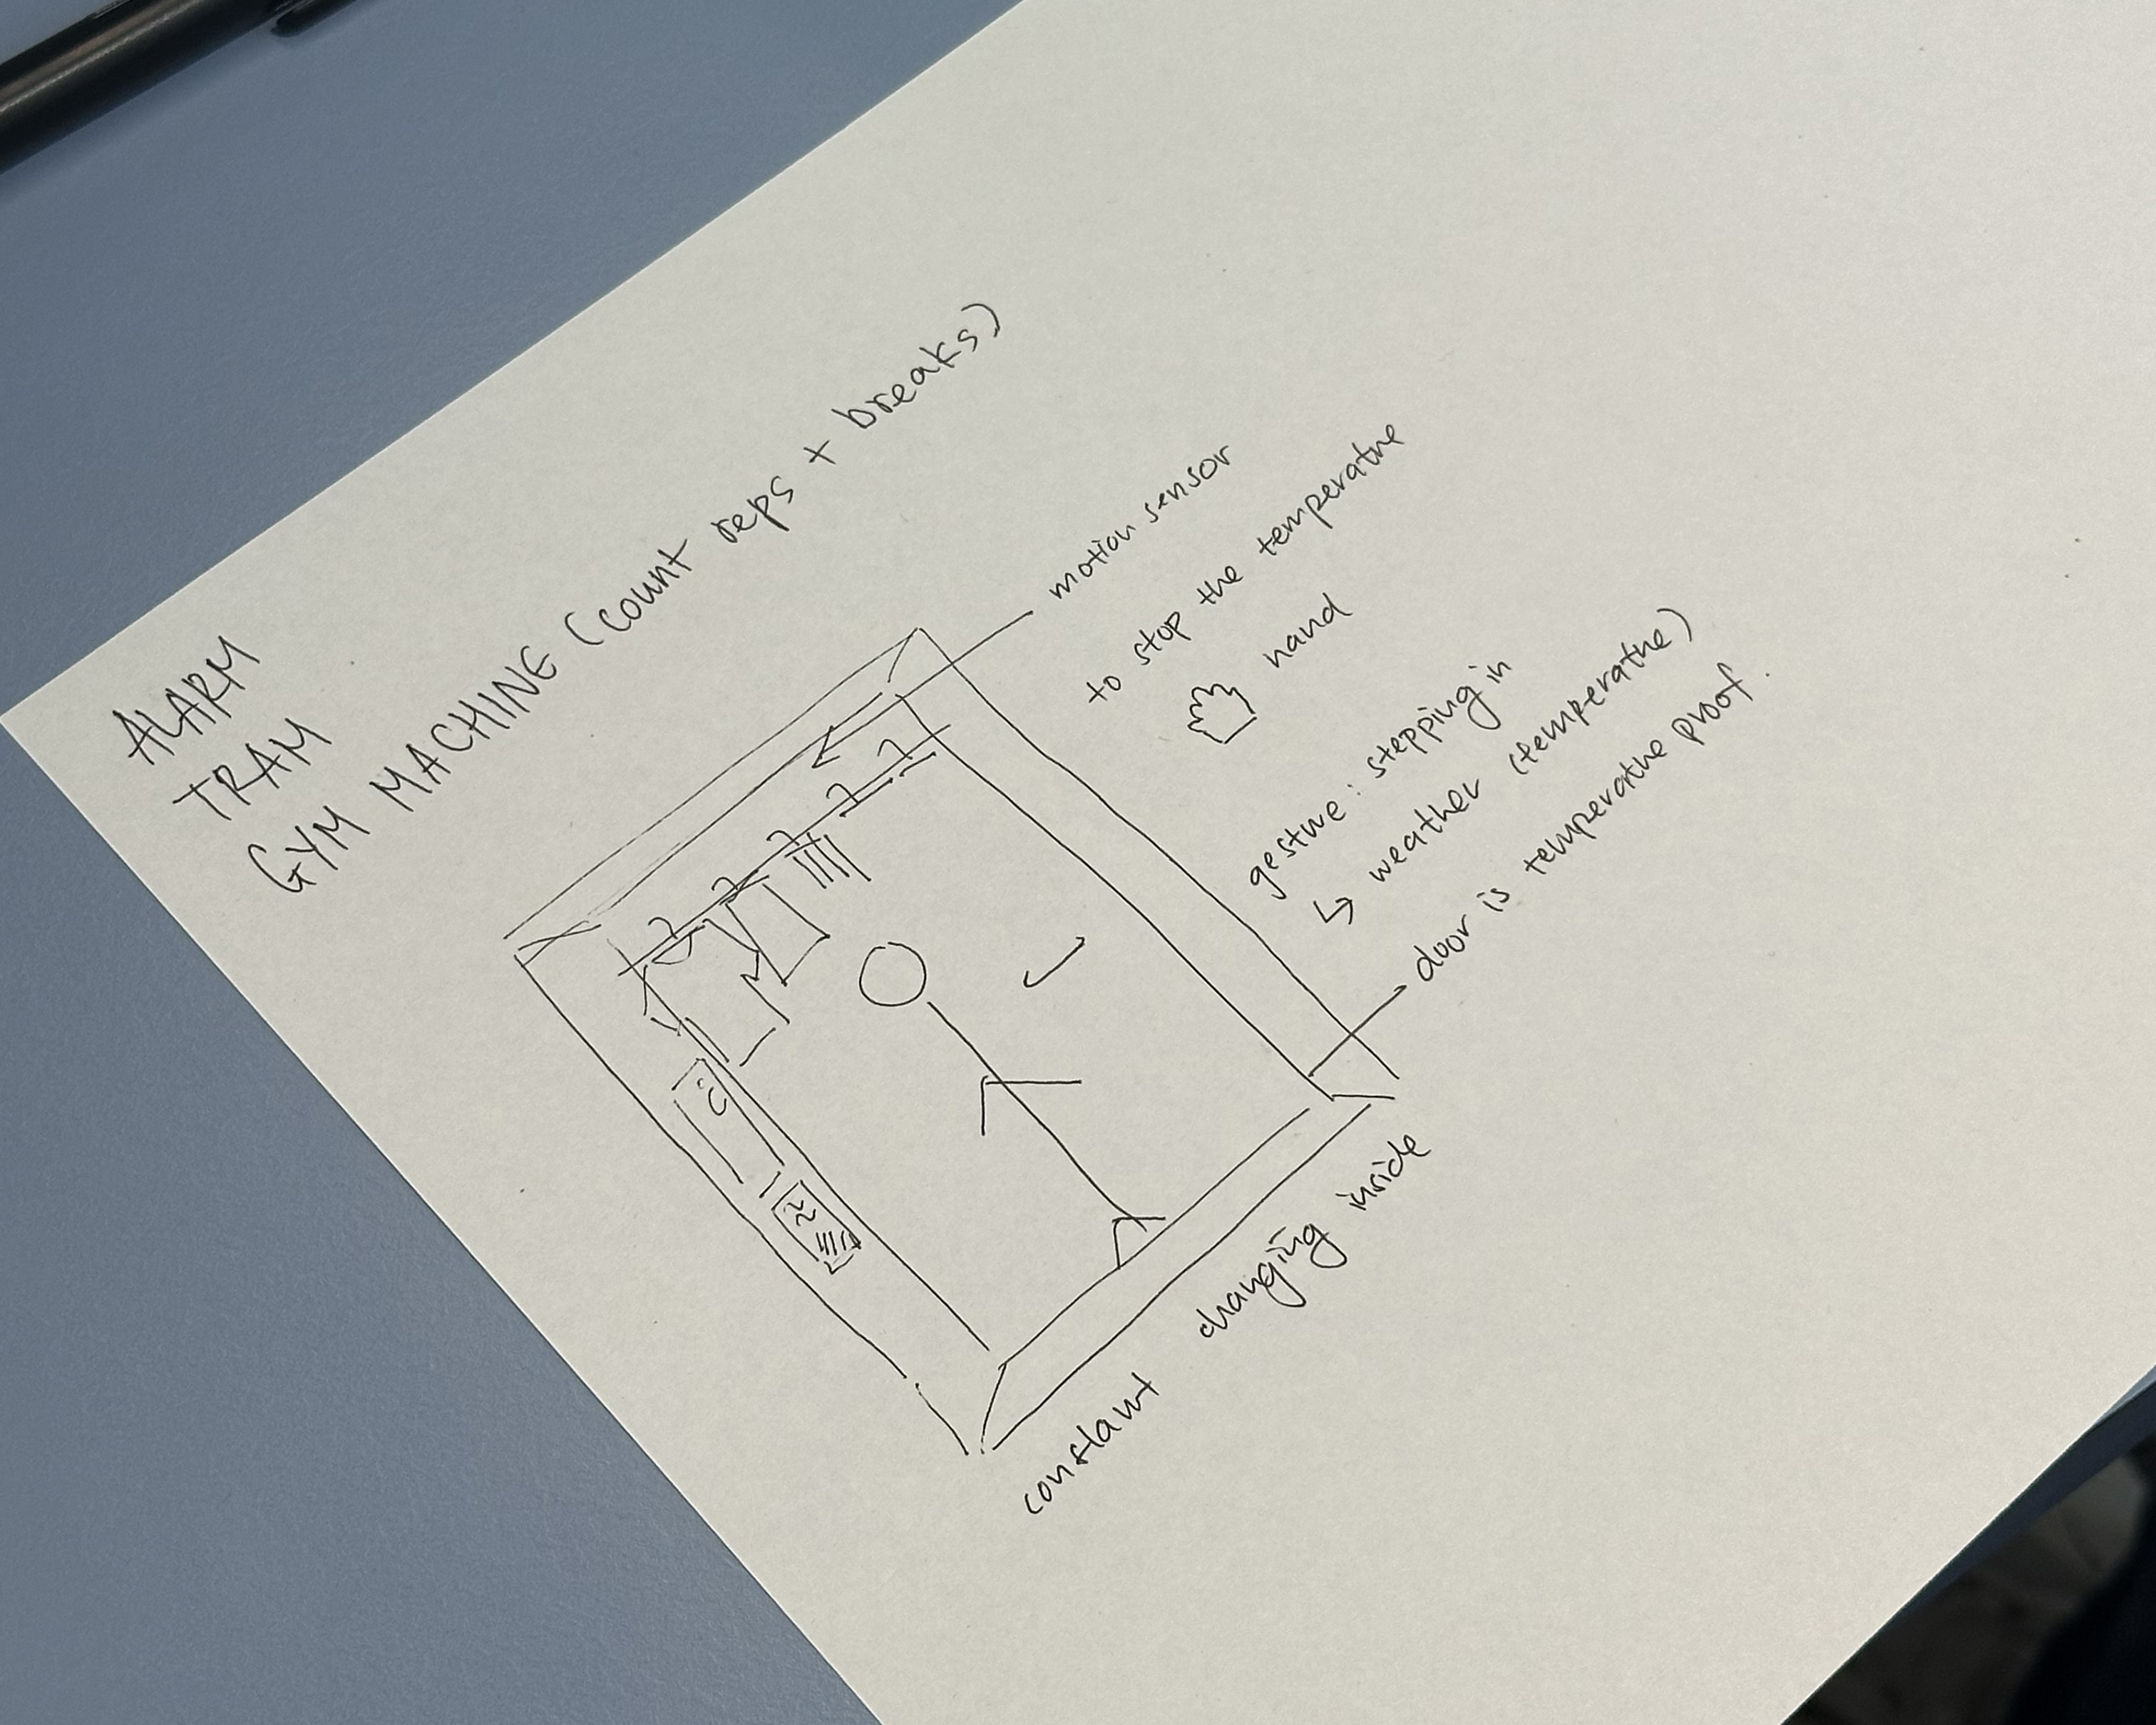 ALARM
TRAM
GYM MACHINE (count reps + breaks)
motion sensor
to stop the temperature
hand
gesture: stepping in
↳ weather (temperature)
door is temperature proof.
constant changing inside